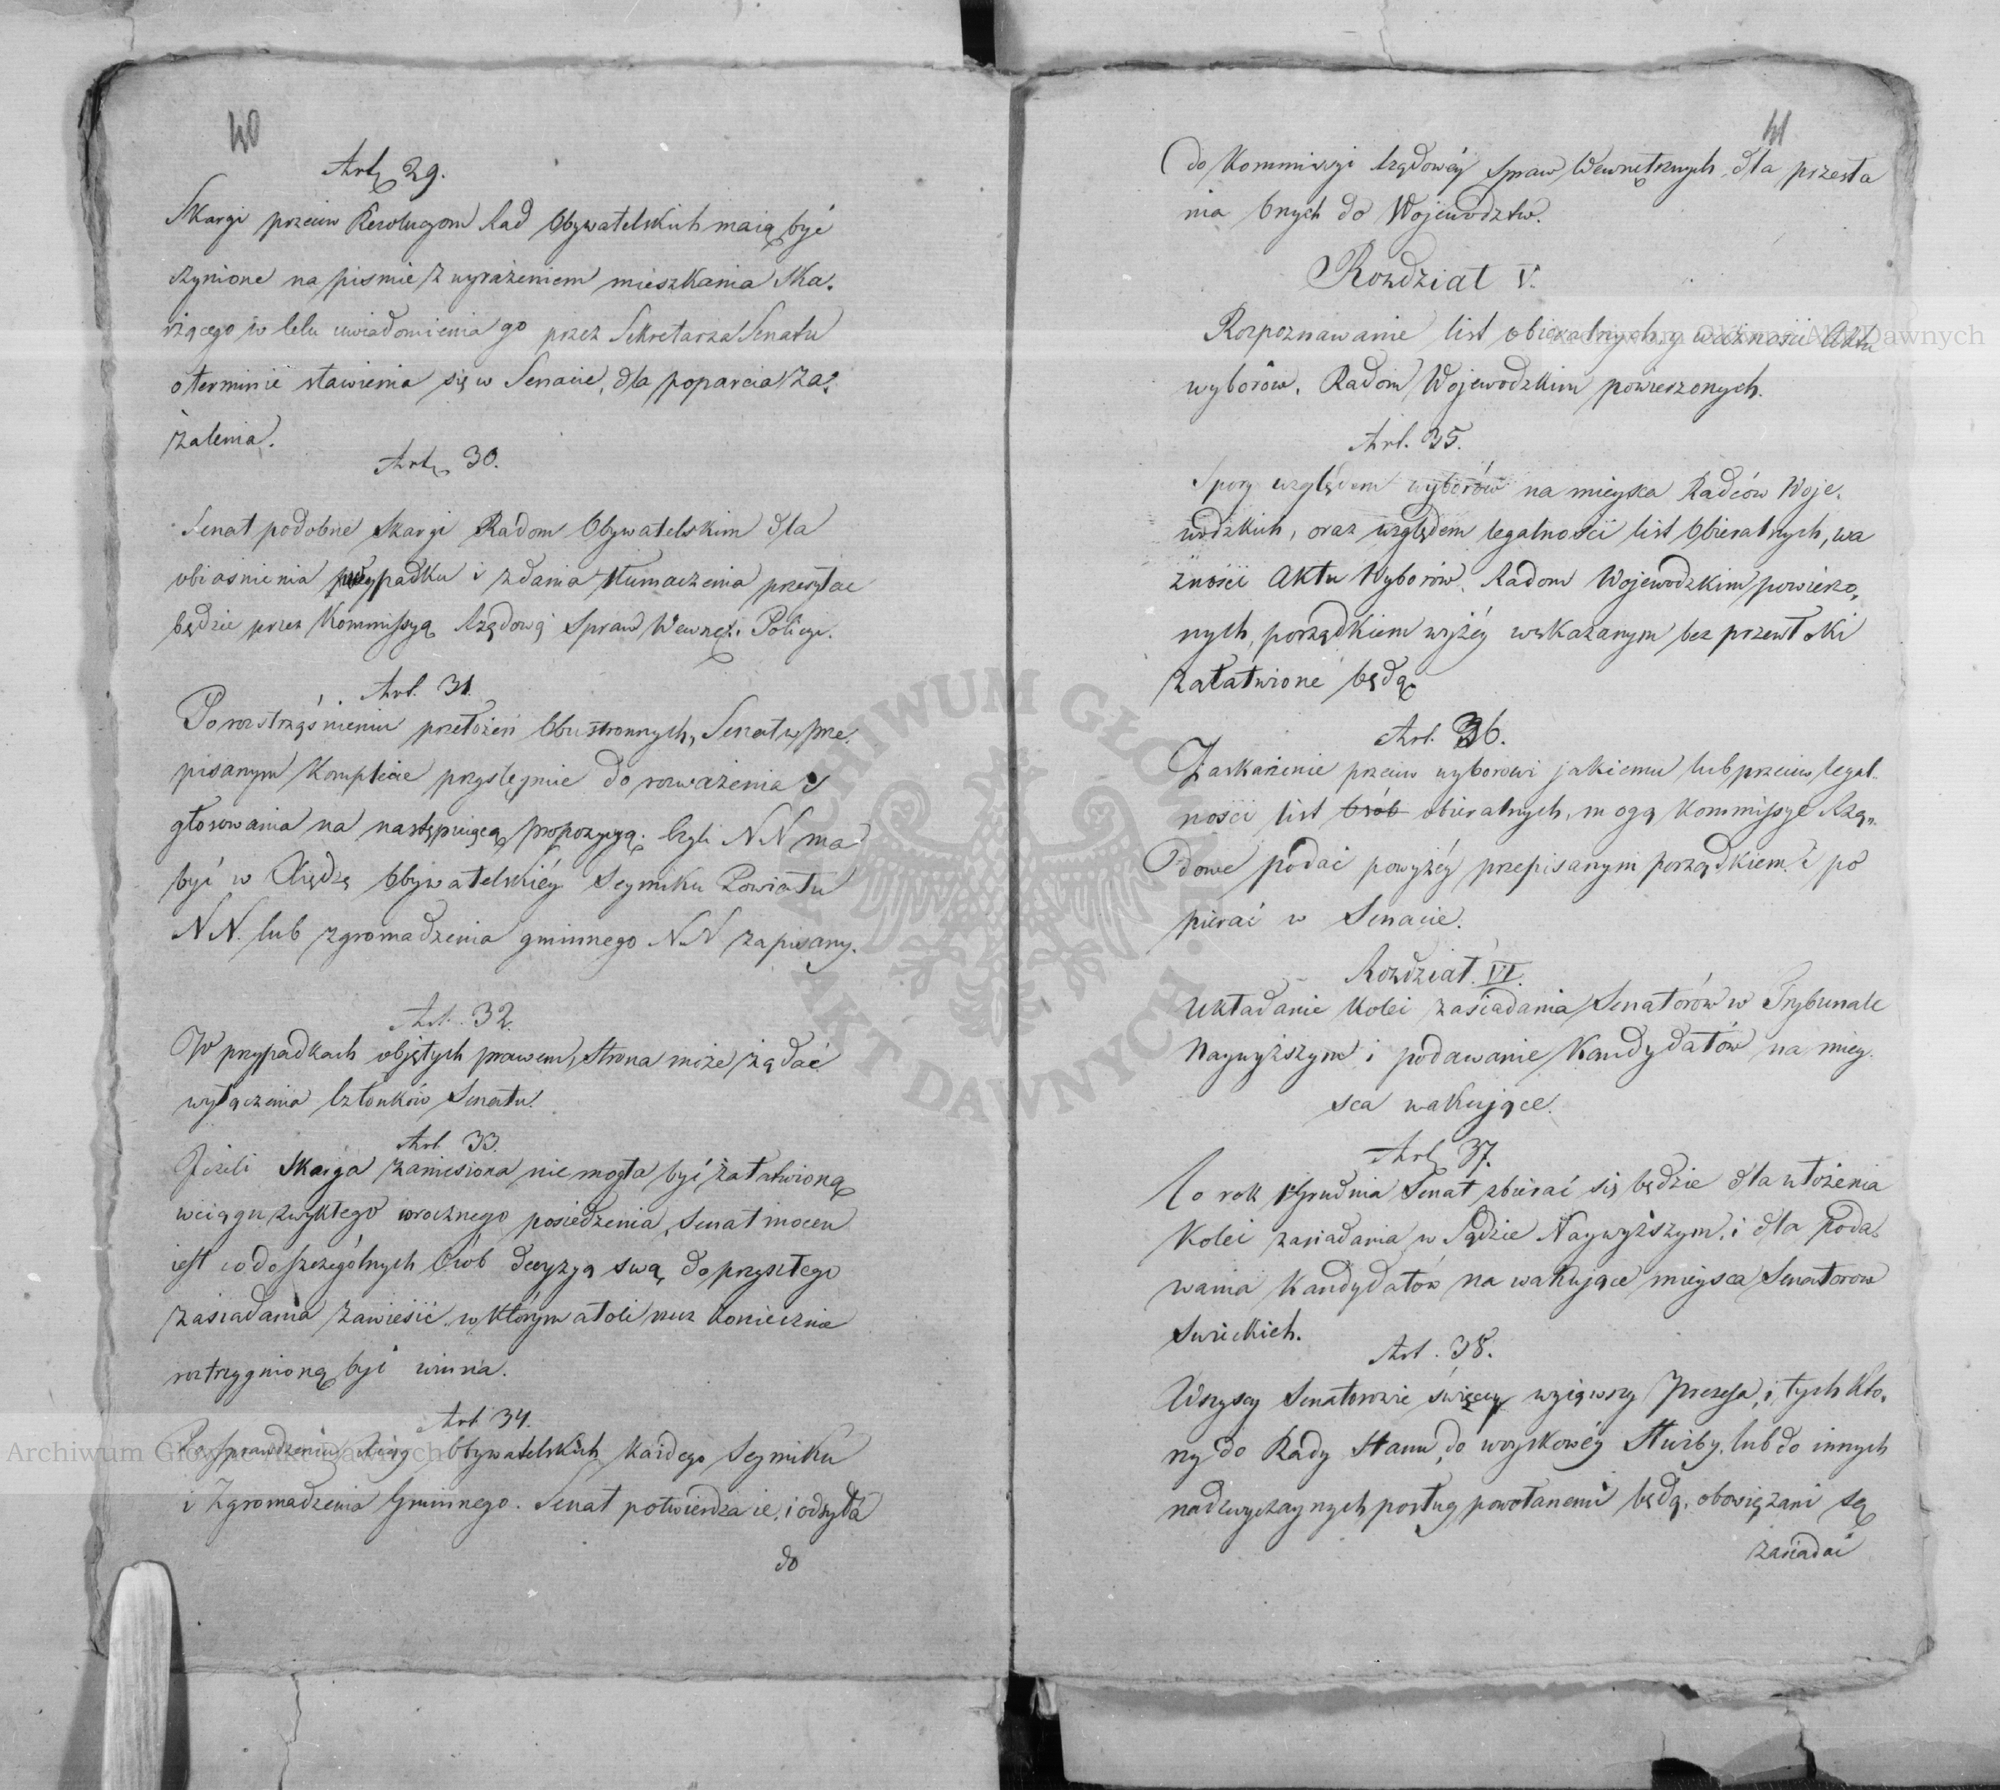 40
Art. 29.
Skargi przeciw Rezolucyom Rad Obywatelskich maią być
czynione na piśmie z wyrażeniem mieszkania Ska„
rżącego w celu uwiadomienia go przez Sekretarza Senatu
o terminie stawienia się w Senacie, dla poparcia za„
żalenia.
Art. 30.
Senat podobne Skargi Radom Obywatelskim dla
obiaśnienia przypadku i zdania tłumaczenia przesyłać
będzie przez Kommissyą Rządową Spraw Wewnę: i Policyi.
Art. 31.
Po rozstrząśnieniu przełożeń Obustronnych, Senat w prze„
pisanym Komplecie przystępuie do rozważenia i
głosowania na następuiącą propozycyą. Czyli N N ma
być w Xiędze Obywatelskiéy Seymiku Powiatu
N N. lub zgromadzenia gminnego N. N zapisany.
Art. 32.
W przypadkach objętych prawem, Strona może żądać
wyłączenia Członków Senatu.
Art. 33.
Jeżeli Skarga zaniesiona nie mogła być załatwioną
w ciągu zwykłego corocznego posiedzenia, Senat mocen
iest co do szczególnych Osób decyzyą swą do przyszłego
zasiadania zawiesić w którym atoli rzecz koniecznie
roztrzygnioną być winna.
Art. 34.
Po sprawdzeniu Xiąg Obywatelskich Każdego Seymiku
i Zgromadzenia Gminnego. Senat potwierdza ie, i odsyła
do
41
do Kommissyi Rządowéy Spraw Wewnętrznych, dla przesła
nia onych do Województw.
Rozdział V.
Rozpoznawanie list obieralnych, y ważności Aktu
wyborów. Radom Wojewodzkim powierzonych.
Art. 35.
Spory względem wyborów na mieysca Radców Woje„
wodzkich, oraz względem legalności list Obieralnych, wa
żności Aktu Wyborów. Radom Wojewodzkim powierzo„
nych, porządkiem wyżéy wskazanym bez przewłoki
załatwione będą.
Art. 36.
Zaskarżenie przeciw wyborowi jakiemu lub przeciw legal„
ności list Osób obieralnych, mogą Kommissye Rzą„
dowe podać powyżéy przepisanym porządkiem i po
pierać w Senacie.
Rozdział. VI.
Układanie Kolei zasiadania Senatórów w Trybunale
Naywyższym i podawanie Kandydatów na miey„
sca wakujące.
Art. 37.
Co rok 1 Grudnia Senat zbierać się będzie dla ułożenia
Kolei zasiadania w Sądzie Naywyższym, i dla Poda„
wania Kandydatów na wakujące mieysca Senatorow
Swieckich.
Art. 38.
Wszyscy Senatorowie świeccy wziąwszy Prezesa, i tych Któ„
rzy do Rady Stanu, do woyskowéy Służby, lub do innych
nadzwyczaynych posług powołanemi będą, obowiązani są
zasiadać
Archiwum Główne Akt Dawnych
Archiwum Główne Akt Dawnych
ARCHIWUM GŁÓWNE AKT DAWNYCH